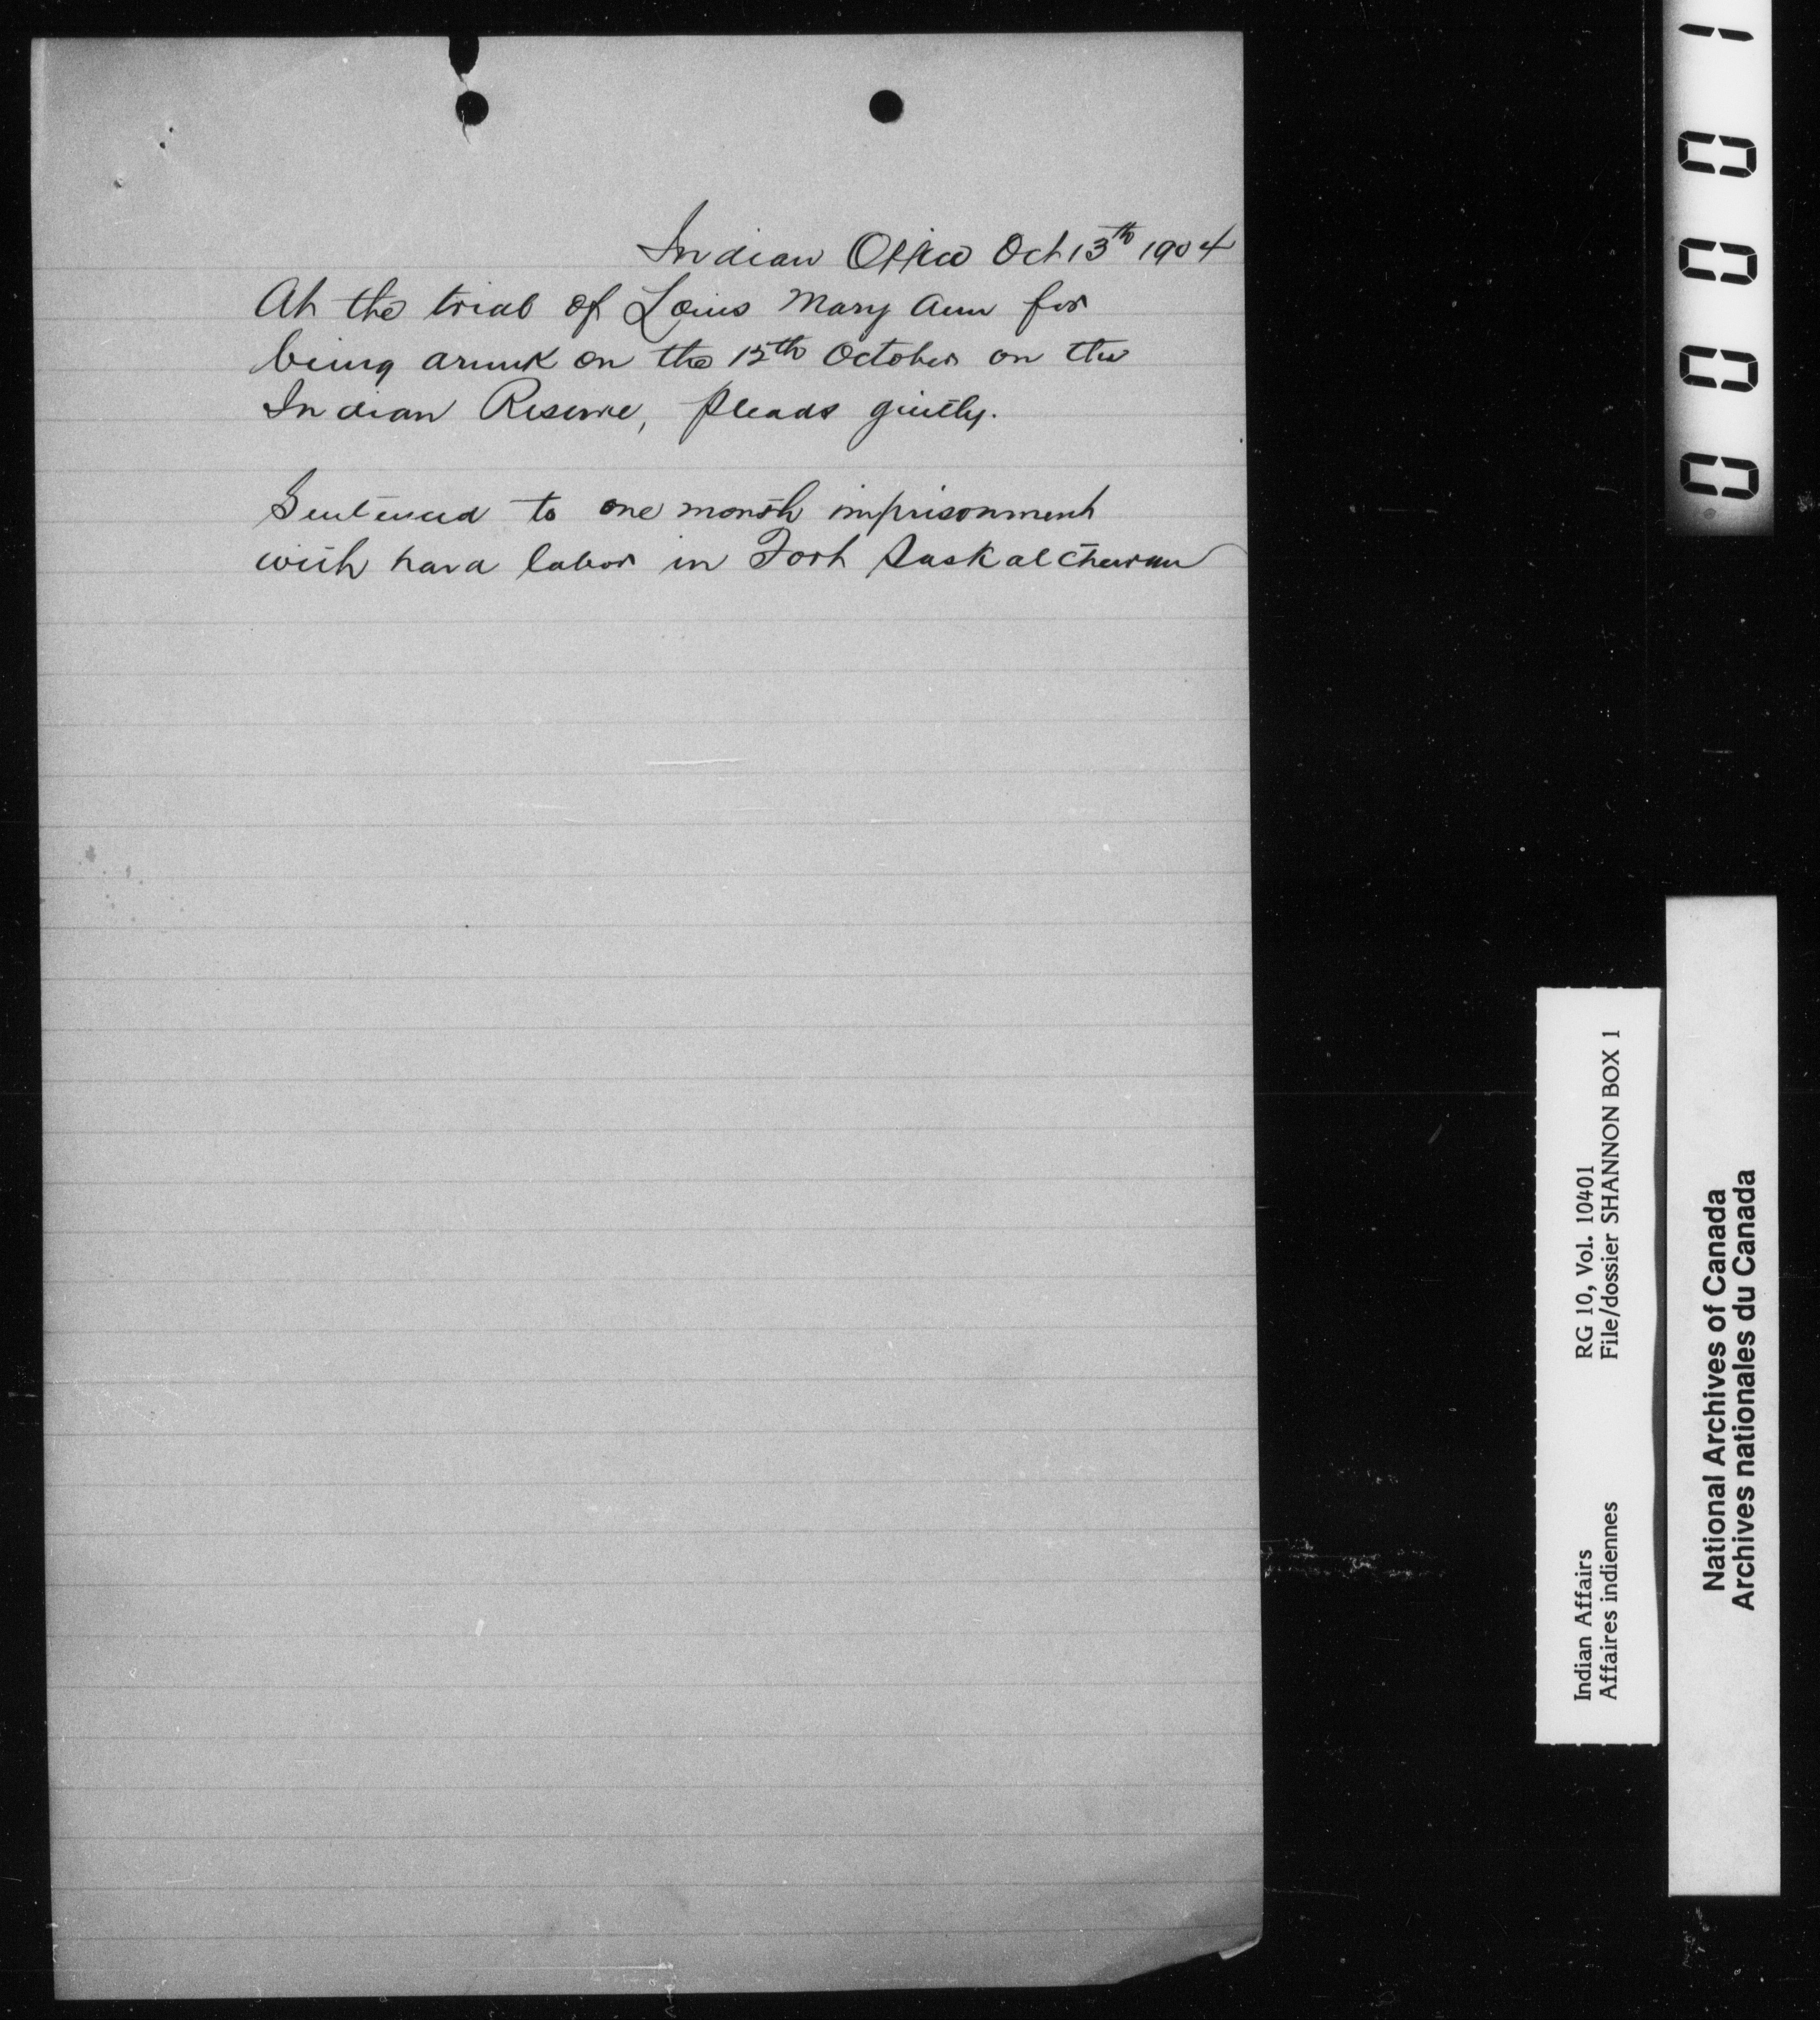 Indian Office Oct 13th 1904
At the trial of Louis Mary Ann for
being drunk on the 12th October on the
Indian Reserve, pleads guilty.
Sentenced to one month imprisonment
with hard labor in Fort Saskatchewan
00001
Indian Affairs RG 10, Vol. 10401
Affaires indiennes File/dossier SHANNON BOX 1
National Archives of Canada
Archives nationales du Canada